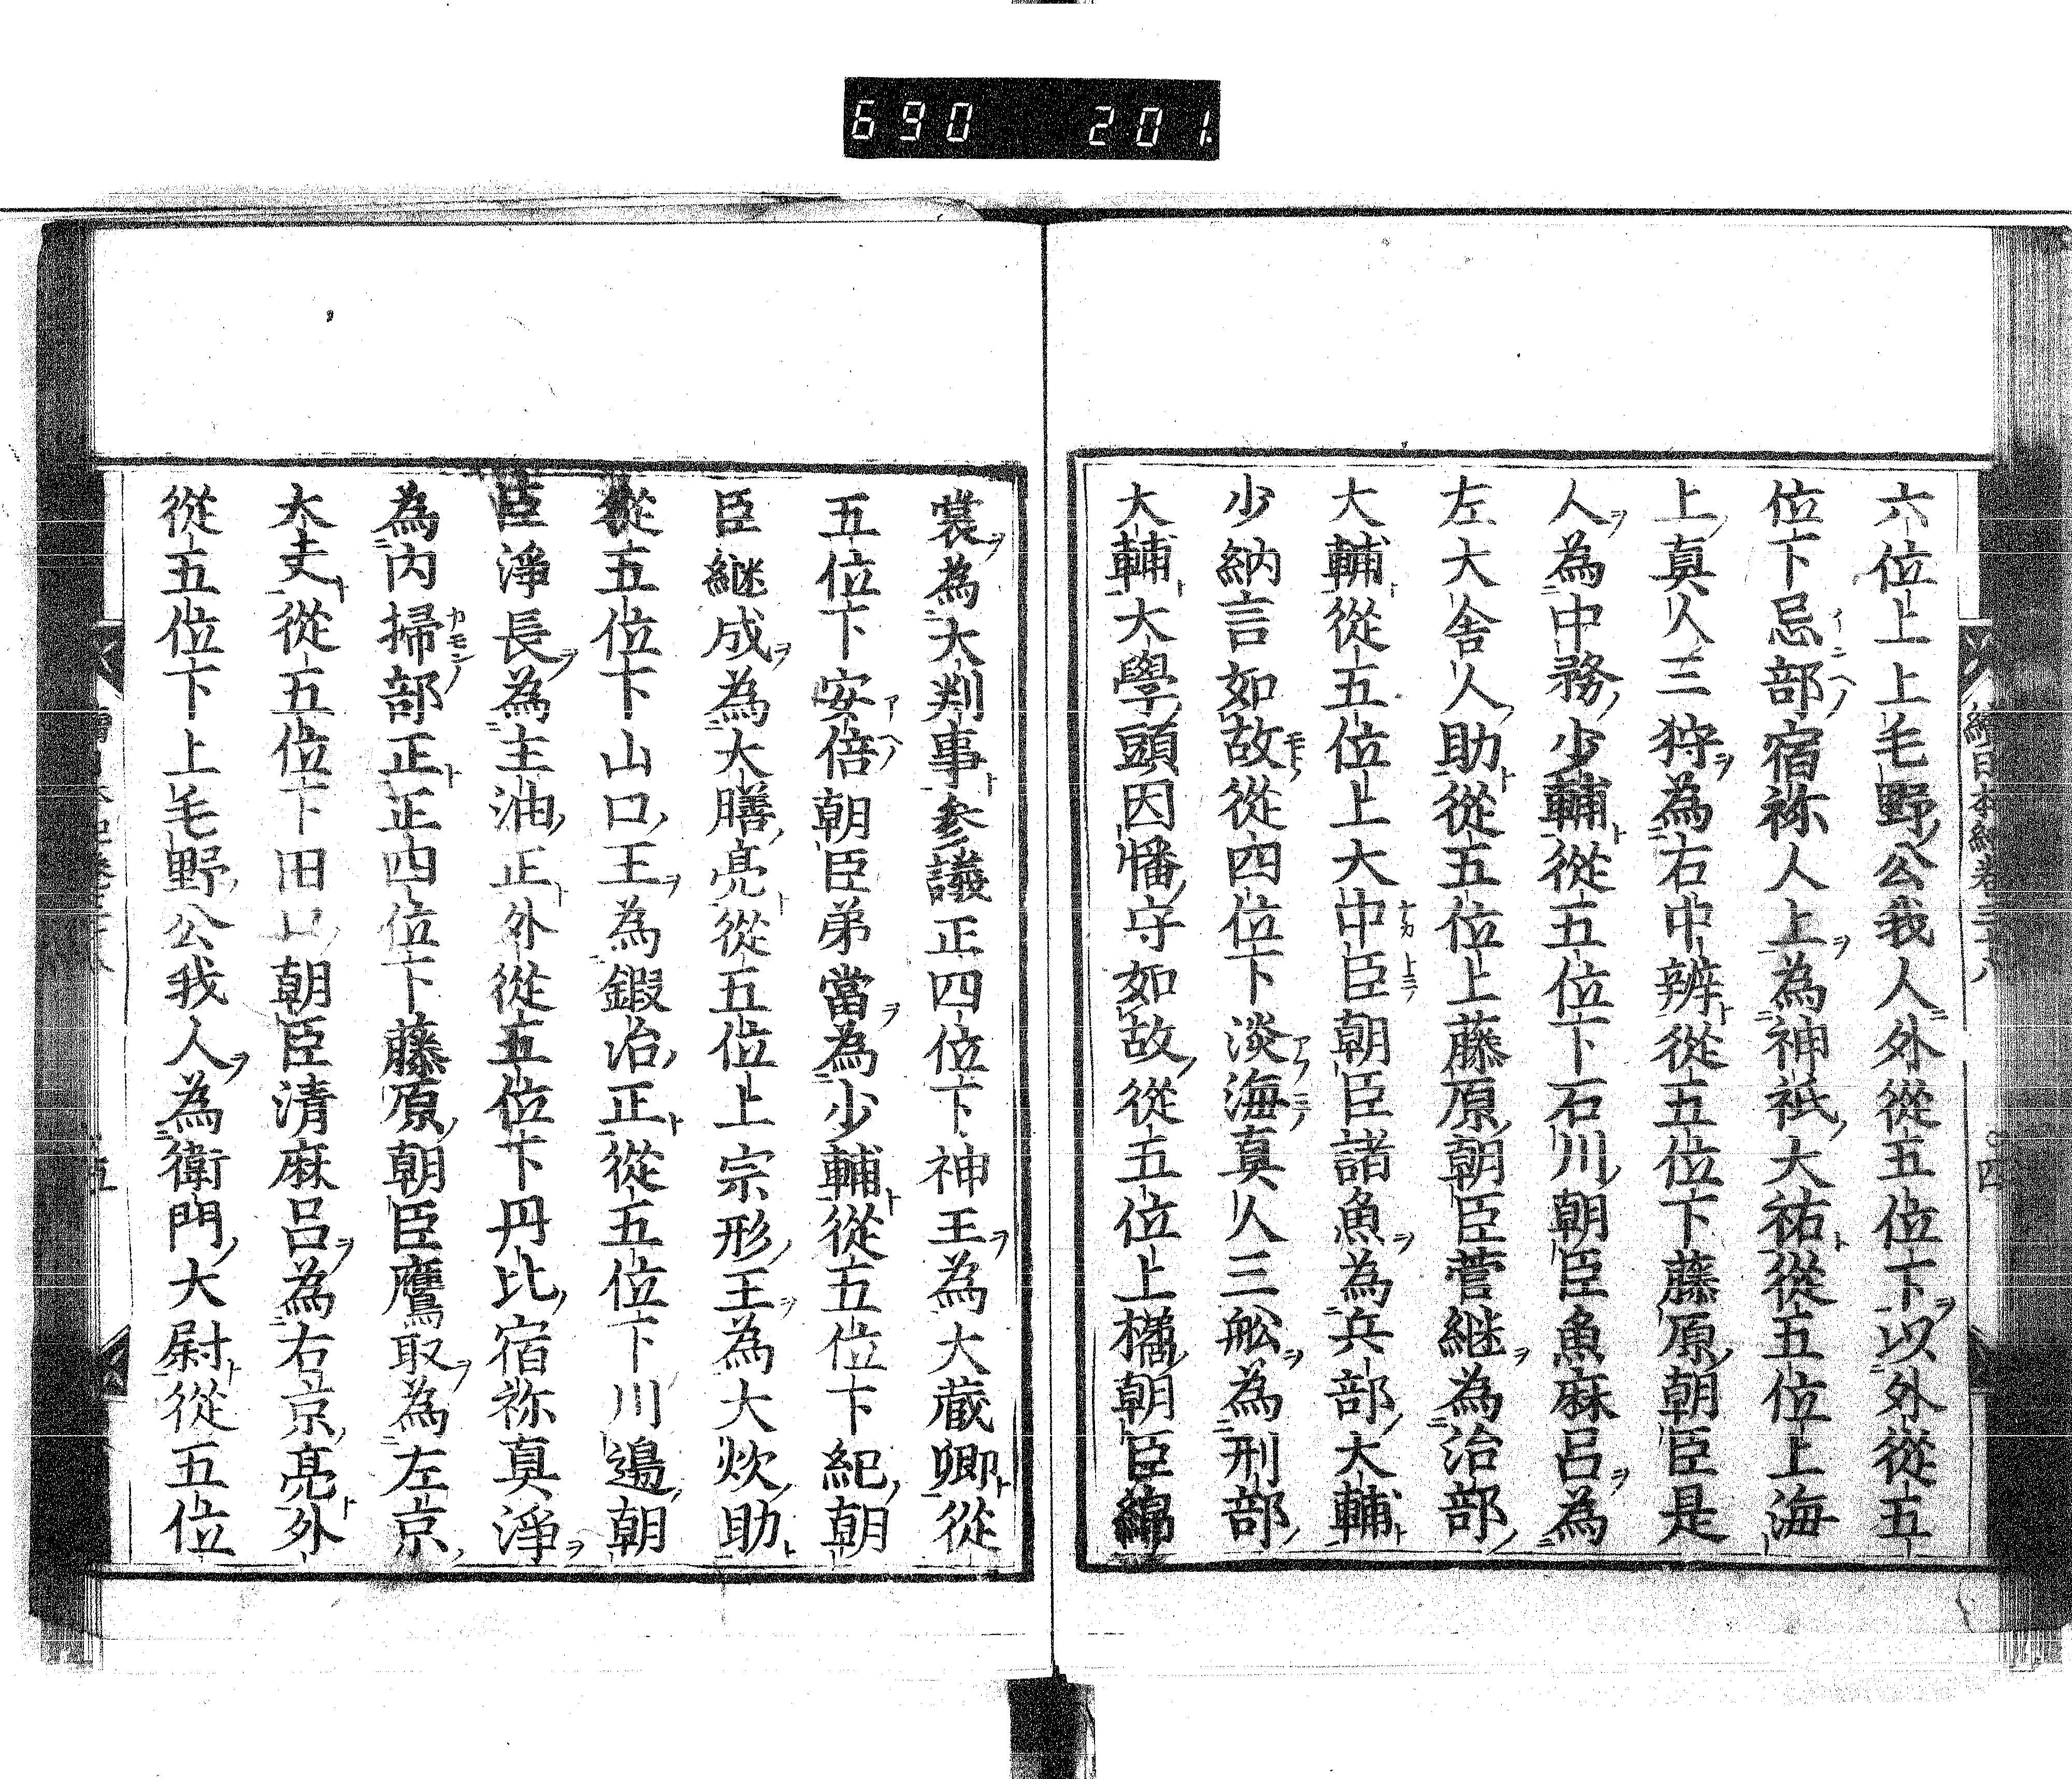 690 201
六位上上毛野公我人外從五位下以外從五
位下忌部宿祢人上為神祇大祐從五位上海
上真人三狩為右中辨從五位下藤原朝臣是
人為中務少輔從五位下石川朝臣魚麻呂為
左大舎人助從五位上藤原朝臣菅継為治部
大輔從五位上大中臣朝臣諸魚為兵部大輔
少納言如故從四位下淡海真人三舩為刑部
大輔大學頭因幡守如故從五位上橘朝臣綿
裳為大判事参議正四位下神王為大蔵卿從
五位下安倍朝臣弟當為少輔從五位下紀朝
臣継成為大膳亮從五位上宗形王為大炊助
從五位下山口王為鍜冶正從五位下川邊朝
臣淨長為主油正外從五位下丹比宿祢真淨
為内掃部正正四位下藤原朝臣鷹取為左京
大夫從五位下田口朝臣清麻呂為右京亮外
從五位下上毛野公我人為衛門大尉從五位